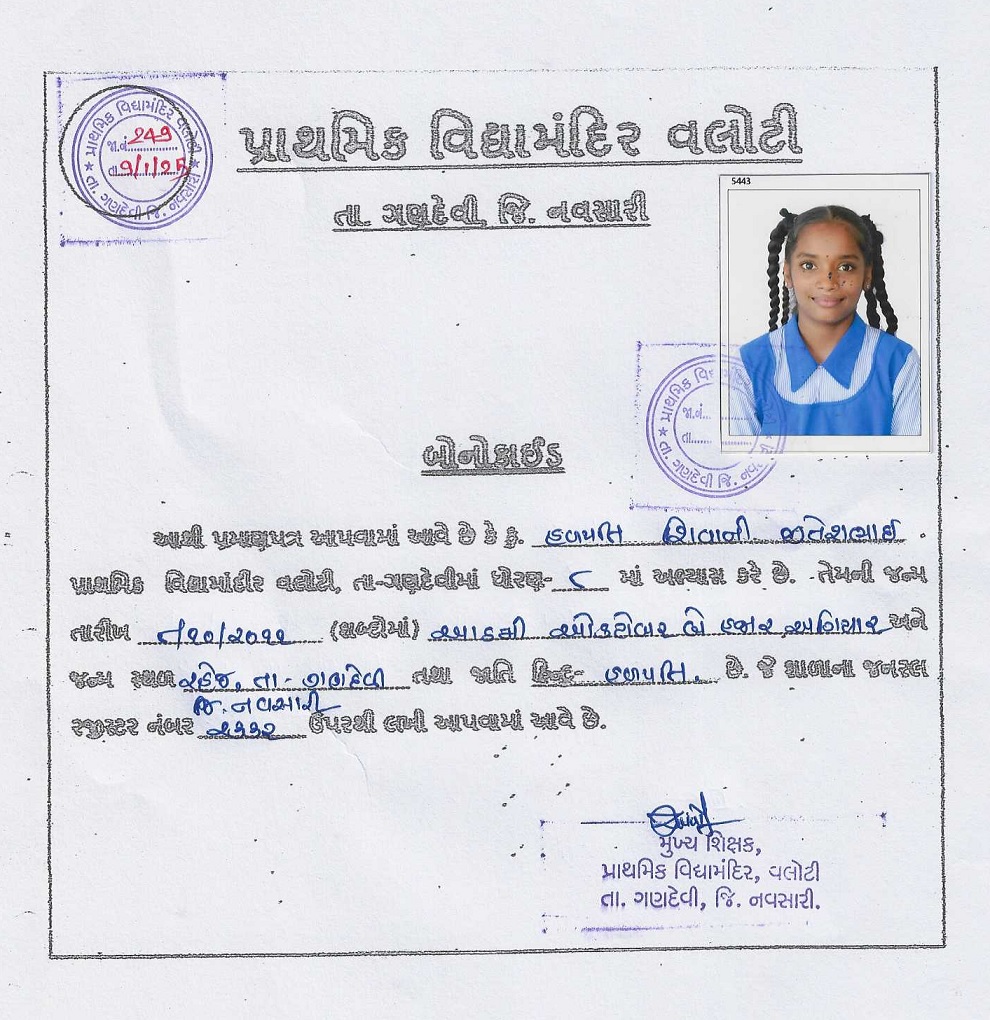 પ્રાથમિક વિદ્યામંદિર વલોટી
જા.નં. 249
તા. 9/1/25
તા. ગણદેવી જિ. નવસારી
પ્રાથમિક વિદ્યામંદિર વલોટી
તા. ગણદેવી, જિ. નવસારી
5443
પ્રાથમિક વિદ્યામંદિર
જા.નં.
તા.
તા. ગણદેવી જિ. નવસારી
બોનોફાઈડ
આથી પ્રમાણપત્ર આપવામાં આવે છે કે કુ. હળપતિ શિવાની જીતેશભાઈ
પ્રાથમિક વિદ્યામંદીર વલોટી, તા-ગણદેવીમાં ધોરણ- ૮ માં અભ્યાસ કરે છે. તેમની જન્મ
તારીખ ૮/૧૦/૨૦૧૧ (શબ્દોમાં) આઠમી ઓકટોબર બે હજાર અગિયાર અને
જન્મ સ્થળ રહેજ, તા- ગણદેવી તથા જાતિ હિન્દુ- હળપતિ. છે. જે શાળાના જનરલ
જિ. નવસારી
રજીસ્ટર નંબર ૨૩૩૨ ઉપરથી લખી આપવામાં આવે છે.
મુખ્ય શિક્ષક,
પ્રાથમિક વિદ્યામંદિર, વલોટી
તા. ગણદેવી, જિ. નવસારી.